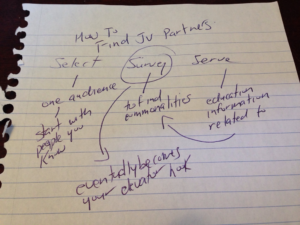 How To
Find JV Partners
Select
Survey
Serve
one audience
start with
people you
know
to find
commonalities
education
information
related to
eventually becomes
your elevator hook